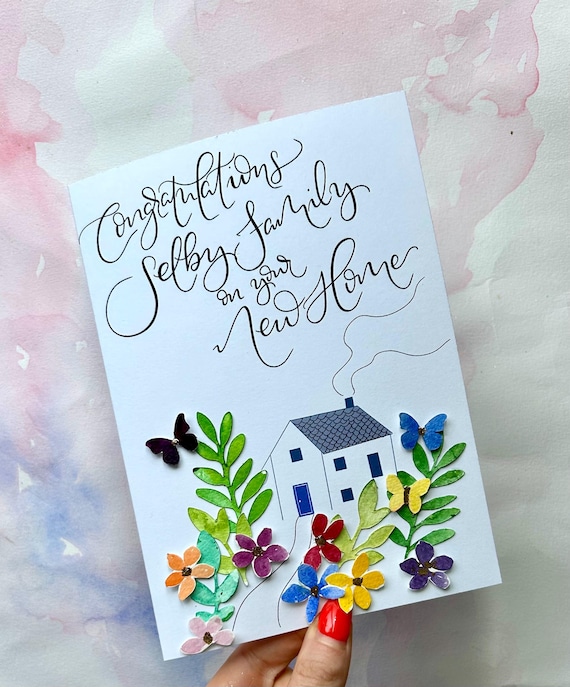 Congratulations
Selby Family
on your
New Home